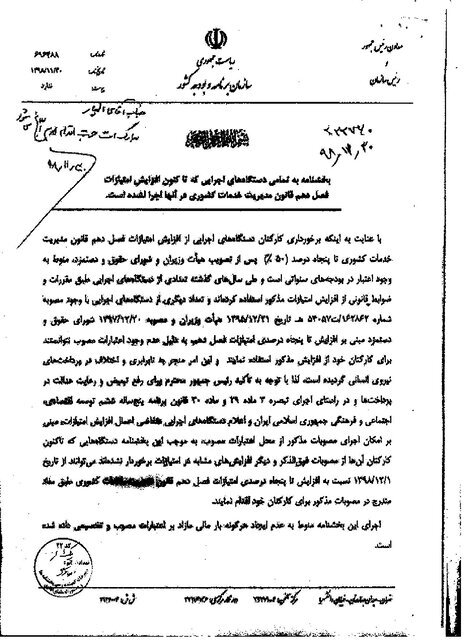 معاون رئیس جمهور
و
رئیس سازمان
ریاست جمهوری
سازمان برنامه و بودجه کشور
۶۹۶۴۸۸
۱۳۹۸/۱۱/۳۰
ندارد
بخشنامه به تمامی دستگاه‌های اجرایی که تا کنون افزایش امتیازات
فصل دهم قانون مدیریت خدمات کشوری در آنها اجرا نشده است.
با عنایت به اینکه برخورداری کارکنان دستگاه‌های اجرایی از افزایش امتیازات فصل دهم قانون مدیریت
خدمات کشوری تا پنجاه درصد (۵۰٪) پس از تصویب هیأت وزیران و شورای حقوق و دستمزد، منوط به
وجود اعتبار در بودجه‌های سنواتی است و طی سال‌های گذشته تعدادی از دستگاه‌های اجرایی طبق مقررات و
ضوابط قانونی از افزایش امتیازات مذکور استفاده کرده‌اند و تعداد دیگری از دستگاه‌های اجرایی با وجود مصوبه
شماره ۱۶۲۸۶۲/ت۵۴۰۵۷هـ تاریخ ۱۳۹۵/۱۲/۲۱ هیأت وزیران و مصوبه ۱۳۹۷/۱۲/۲۰ شورای حقوق و
دستمزد مبنی بر افزایش تا پنجاه درصدی امتیازات فصل دهم به دلیل عدم وجود اعتبارات مصوب نتوانستند
برای کارکنان خود از افزایش مذکور استفاده نمایند و این امر منجر به نابرابری و اختلاف در پرداخت‌های
نیروی انسانی گردیده است، لذا با توجه به تأکید رئیس جمهور محترم برای رفع تبعیض و رعایت عدالت در
پرداخت‌ها و در راستای اجرای تبصره ۳ ماده ۲۹ و ماده ۳۰ قانون برنامه پنج‌ساله ششم توسعه اقتصادی،
اجتماعی و فرهنگی جمهوری اسلامی ایران و اعلام دستگاه‌های اجرایی متقاضی اعمال افزایش امتیازات، مبنی
بر امکان اجرای مصوبات مذکور از محل اعتبارات مصوب، به موجب این بخشنامه دستگاه‌هایی که تاکنون
کارکنان آن‌ها از مصوبات فوق‌الذکر و دیگر افزایش‌های مشابه در امتیازات برخوردار نشده‌اند می‌توانند از تاریخ
۱۳۹۸/۱۲/۱ نسبت به افزایش تا پنجاه درصدی امتیازات فصل دهم قانون کشوری طبق مفاد
مندرج در مصوبات مذکور برای کارکنان خود اقدام نمایند.
اجرای این بخشنامه منوط به عدم ایجاد هرگونه بار مالی مازاد بر اعتبارات مصوب و تخصیصی داده شده
است.